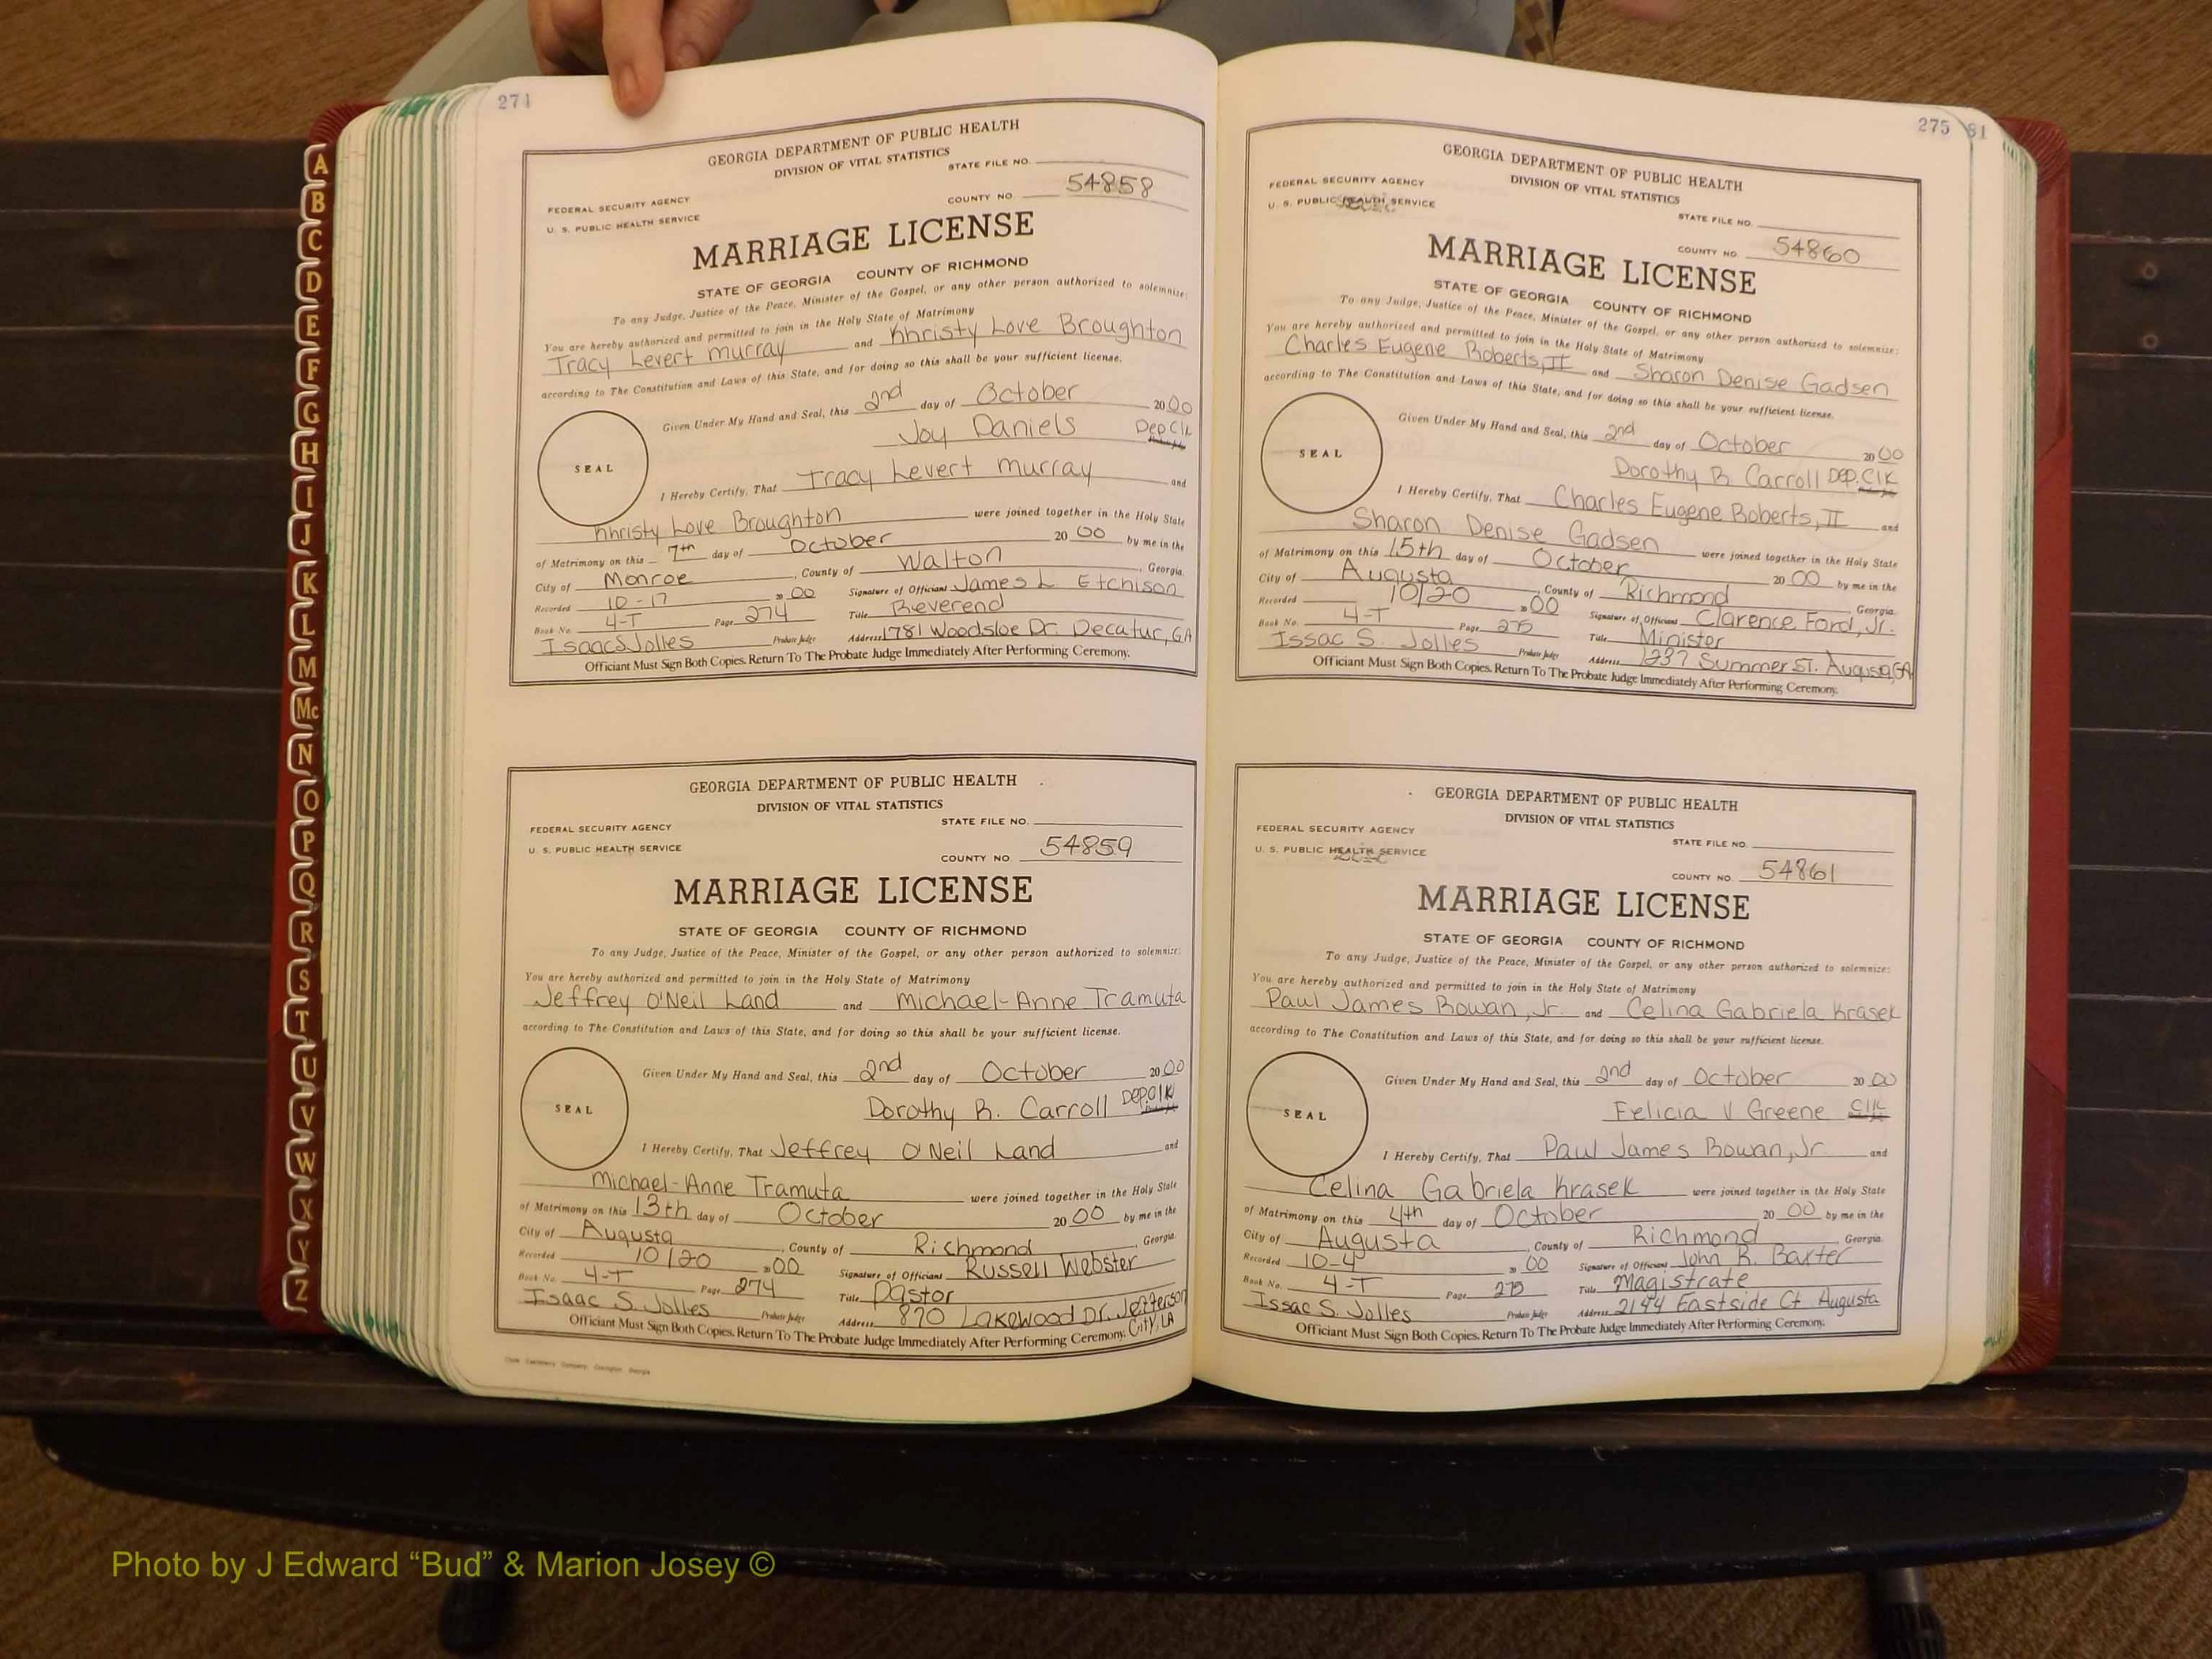 274
GEORGIA DEPARTMENT OF PUBLIC HEALTH
DIVISION OF VITAL STATISTICS
STATE FILE NO.
FEDERAL SECURITY AGENCY
U. S. PUBLIC HEALTH SERVICE
COUNTY NO. 54858
MARRIAGE LICENSE
STATE OF GEORGIA COUNTY OF RICHMOND
To any Judge, Justice of the Peace, Minister of the Gospel, or any other person authorized to solemnize:
You are hereby authorized and permitted to join in the Holy State of Matrimony
Tracy Levert Murray and Khristy Love Broughton
according to The Constitution and Laws of this State, and for doing so this shall be your sufficient license.
Given Under My Hand and Seal, this 2nd day of October 2000
Joy Daniels Dep Clk
SEAL
I Hereby Certify, That Tracy Levert Murray and
Khristy Love Broughton were joined together in the Holy State
of Matrimony on this 7th day of October 2000 by me in the
City of Monroe, County of Walton, Georgia.
Recorded 10-17 2000 Signature of Officiant James L Etchison
Book No. 4-T Page 274 Title Reverend
Isaac S Jolles Probate Judge Address 1781 Woodsloe Dr. Decatur, GA
Officiant Must Sign Both Copies. Return To The Probate Judge Immediately After Performing Ceremony.
GEORGIA DEPARTMENT OF PUBLIC HEALTH
DIVISION OF VITAL STATISTICS
STATE FILE NO.
FEDERAL SECURITY AGENCY
U. S. PUBLIC HEALTH SERVICE
COUNTY NO. 54859
MARRIAGE LICENSE
STATE OF GEORGIA COUNTY OF RICHMOND
To any Judge, Justice of the Peace, Minister of the Gospel, or any other person authorized to solemnize:
You are hereby authorized and permitted to join in the Holy State of Matrimony
Jeffrey O'Neil Land and Michael-Anne Tramuta
according to The Constitution and Laws of this State, and for doing so this shall be your sufficient license.
Given Under My Hand and Seal, this 2nd day of October 2000
Dorothy R. Carroll Dep Clk
SEAL
I Hereby Certify, That Jeffrey O'Neil Land and
Michael-Anne Tramuta were joined together in the Holy State
of Matrimony on this 13th day of October 2000 by me in the
City of Augusta, County of Richmond, Georgia.
Recorded 10/20 2000 Signature of Officiant Russell Webster
Book No. 4-T Page 274 Title Pastor
Isaac S. Jolles Probate Judge Address 870 Lakewood Dr. Jefferson City, LA
Officiant Must Sign Both Copies. Return To The Probate Judge Immediately After Performing Ceremony.
275 81
GEORGIA DEPARTMENT OF PUBLIC HEALTH
DIVISION OF VITAL STATISTICS
FEDERAL SECURITY AGENCY
U. S. PUBLIC HEALTH SERVICE
STATE FILE NO.
COUNTY NO. 54860
MARRIAGE LICENSE
STATE OF GEORGIA COUNTY OF RICHMOND
To any Judge, Justice of the Peace, Minister of the Gospel, or any other person authorized to solemnize:
You are hereby authorized and permitted to join in the Holy State of Matrimony
Charles Eugene Roberts, II and Sharon Denise Gadsen
according to The Constitution and Laws of this State, and for doing so this shall be your sufficient license.
Given Under My Hand and Seal, this 2nd day of October 2000
Dorothy R Carroll Dep. Clk
SEAL
I Hereby Certify, That Charles Eugene Roberts, II and
Sharon Denise Gadsen were joined together in the Holy State
of Matrimony on this 15th day of October 2000 by me in the
City of Augusta, County of Richmond Georgia.
Recorded 10/20 2000 Signature of Officiant Clarence Ford, Jr.
Book No. 4-T Page 275 Title Minister
Issac S. Jolles Probate Judge Address 1237 Summer St. Augusta, GA
Officiant Must Sign Both Copies. Return To The Probate Judge Immediately After Performing Ceremony.
GEORGIA DEPARTMENT OF PUBLIC HEALTH
DIVISION OF VITAL STATISTICS
FEDERAL SECURITY AGENCY
U. S. PUBLIC HEALTH SERVICE
STATE FILE NO.
COUNTY NO. 54861
MARRIAGE LICENSE
STATE OF GEORGIA COUNTY OF RICHMOND
To any Judge, Justice of the Peace, Minister of the Gospel, or any other person authorized to solemnize:
You are hereby authorized and permitted to join in the Holy State of Matrimony
Paul James Rowan, Jr. and Celina Gabriela Krasek
according to The Constitution and Laws of this State, and for doing so this shall be your sufficient license.
Given Under My Hand and Seal, this 2nd day of October 2000
Felicia V Greene Clk
SEAL
I Hereby Certify, That Paul James Rowan, Jr and
Celina Gabriela Krasek were joined together in the Holy State
of Matrimony on this 4th day of October 2000 by me in the
City of Augusta, County of Richmond Georgia.
Recorded 10-4 2000 Signature of Officiant John R. Baxter
Book No. 4-T Page 275 Title Magistrate
Issac S. Jolles Probate Judge Address 2144 Eastside Ct Augusta
Officiant Must Sign Both Copies. Return To The Probate Judge Immediately After Performing Ceremony.
A
B
C
D
E
F
G
H
I
J
K
L
M
Mc
N
O
P
Q
R
S
T
U
V
W
X
Y
Z
Photo by J Edward “Bud” & Marion Josey ©